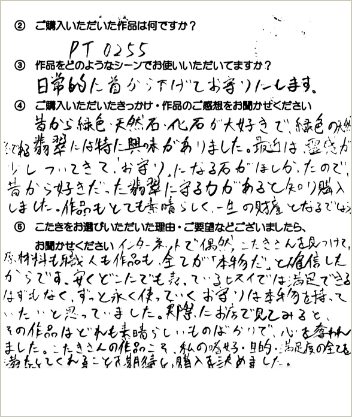 ② ご購入いただいた作品は何ですか？
PT 0255
③ 作品をどのようなシーンでお使いいただいてますか？
日常的に首から下げてお守りにします。
④ ご購入いただいたきっかけ・作品のご感想をお聞かせください
昔から緑色・天然石・化石が大好きで、緑色の天然
石である翡翠には特に興味がありました。最近は
しついてきて、お守りになる石がほしかったので、
昔から好きだった翡翠に守る力があると知り購入
しました。作品もとても素晴らしく、一生の財産となるでしょう
⑤ こたきをお選びいただいた理由・ご要望などございましたら、
お聞かせください インターネットで偶然、こたきさんを見つけて、
原材料も職人も作品も、全てが「本物だ」と確信した
からです。安くどこにでも売っているヒスイでは満足できる
はずもなく、ずっと永く使っていくお守りは本物を持って
いたいと思っていました。実際にお店で見てみると、
その作品はどれも素晴らしいものばかりで、心を奪われ
ました。こたきさんの作品こそ、私の嗜好・目的・満足度の全てを
満たしてくれることを期待し、購入を決めました。